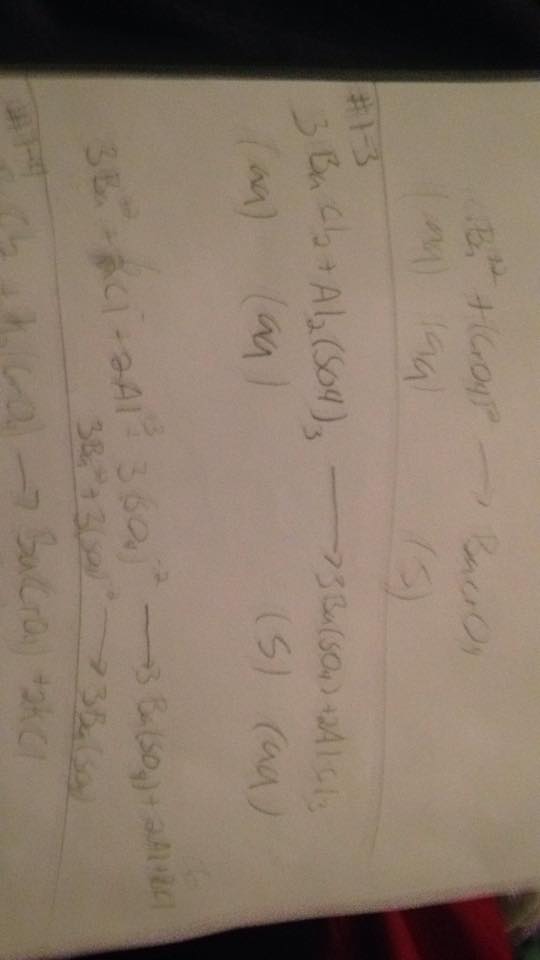 Ba⁺² + (CrO4)⁻² → BaCrO4
(aq) (aq) (s)
#1-3
3BaCl2 + Al2(SO4)3 → 3Ba(SO4) + 2AlCl3
(aq) (aq) (s) (aq)
3Ba⁺² + 6Cl⁻ + 2Al⁺³ 3(SO4)⁻² → 3Ba(SO4) + 2Al
3Ba⁺² + 3(SO4)⁻² → 3Ba(SO4)
#1-4
Cl2 + (CrO4) → Ba(CrO4) + 2KCl